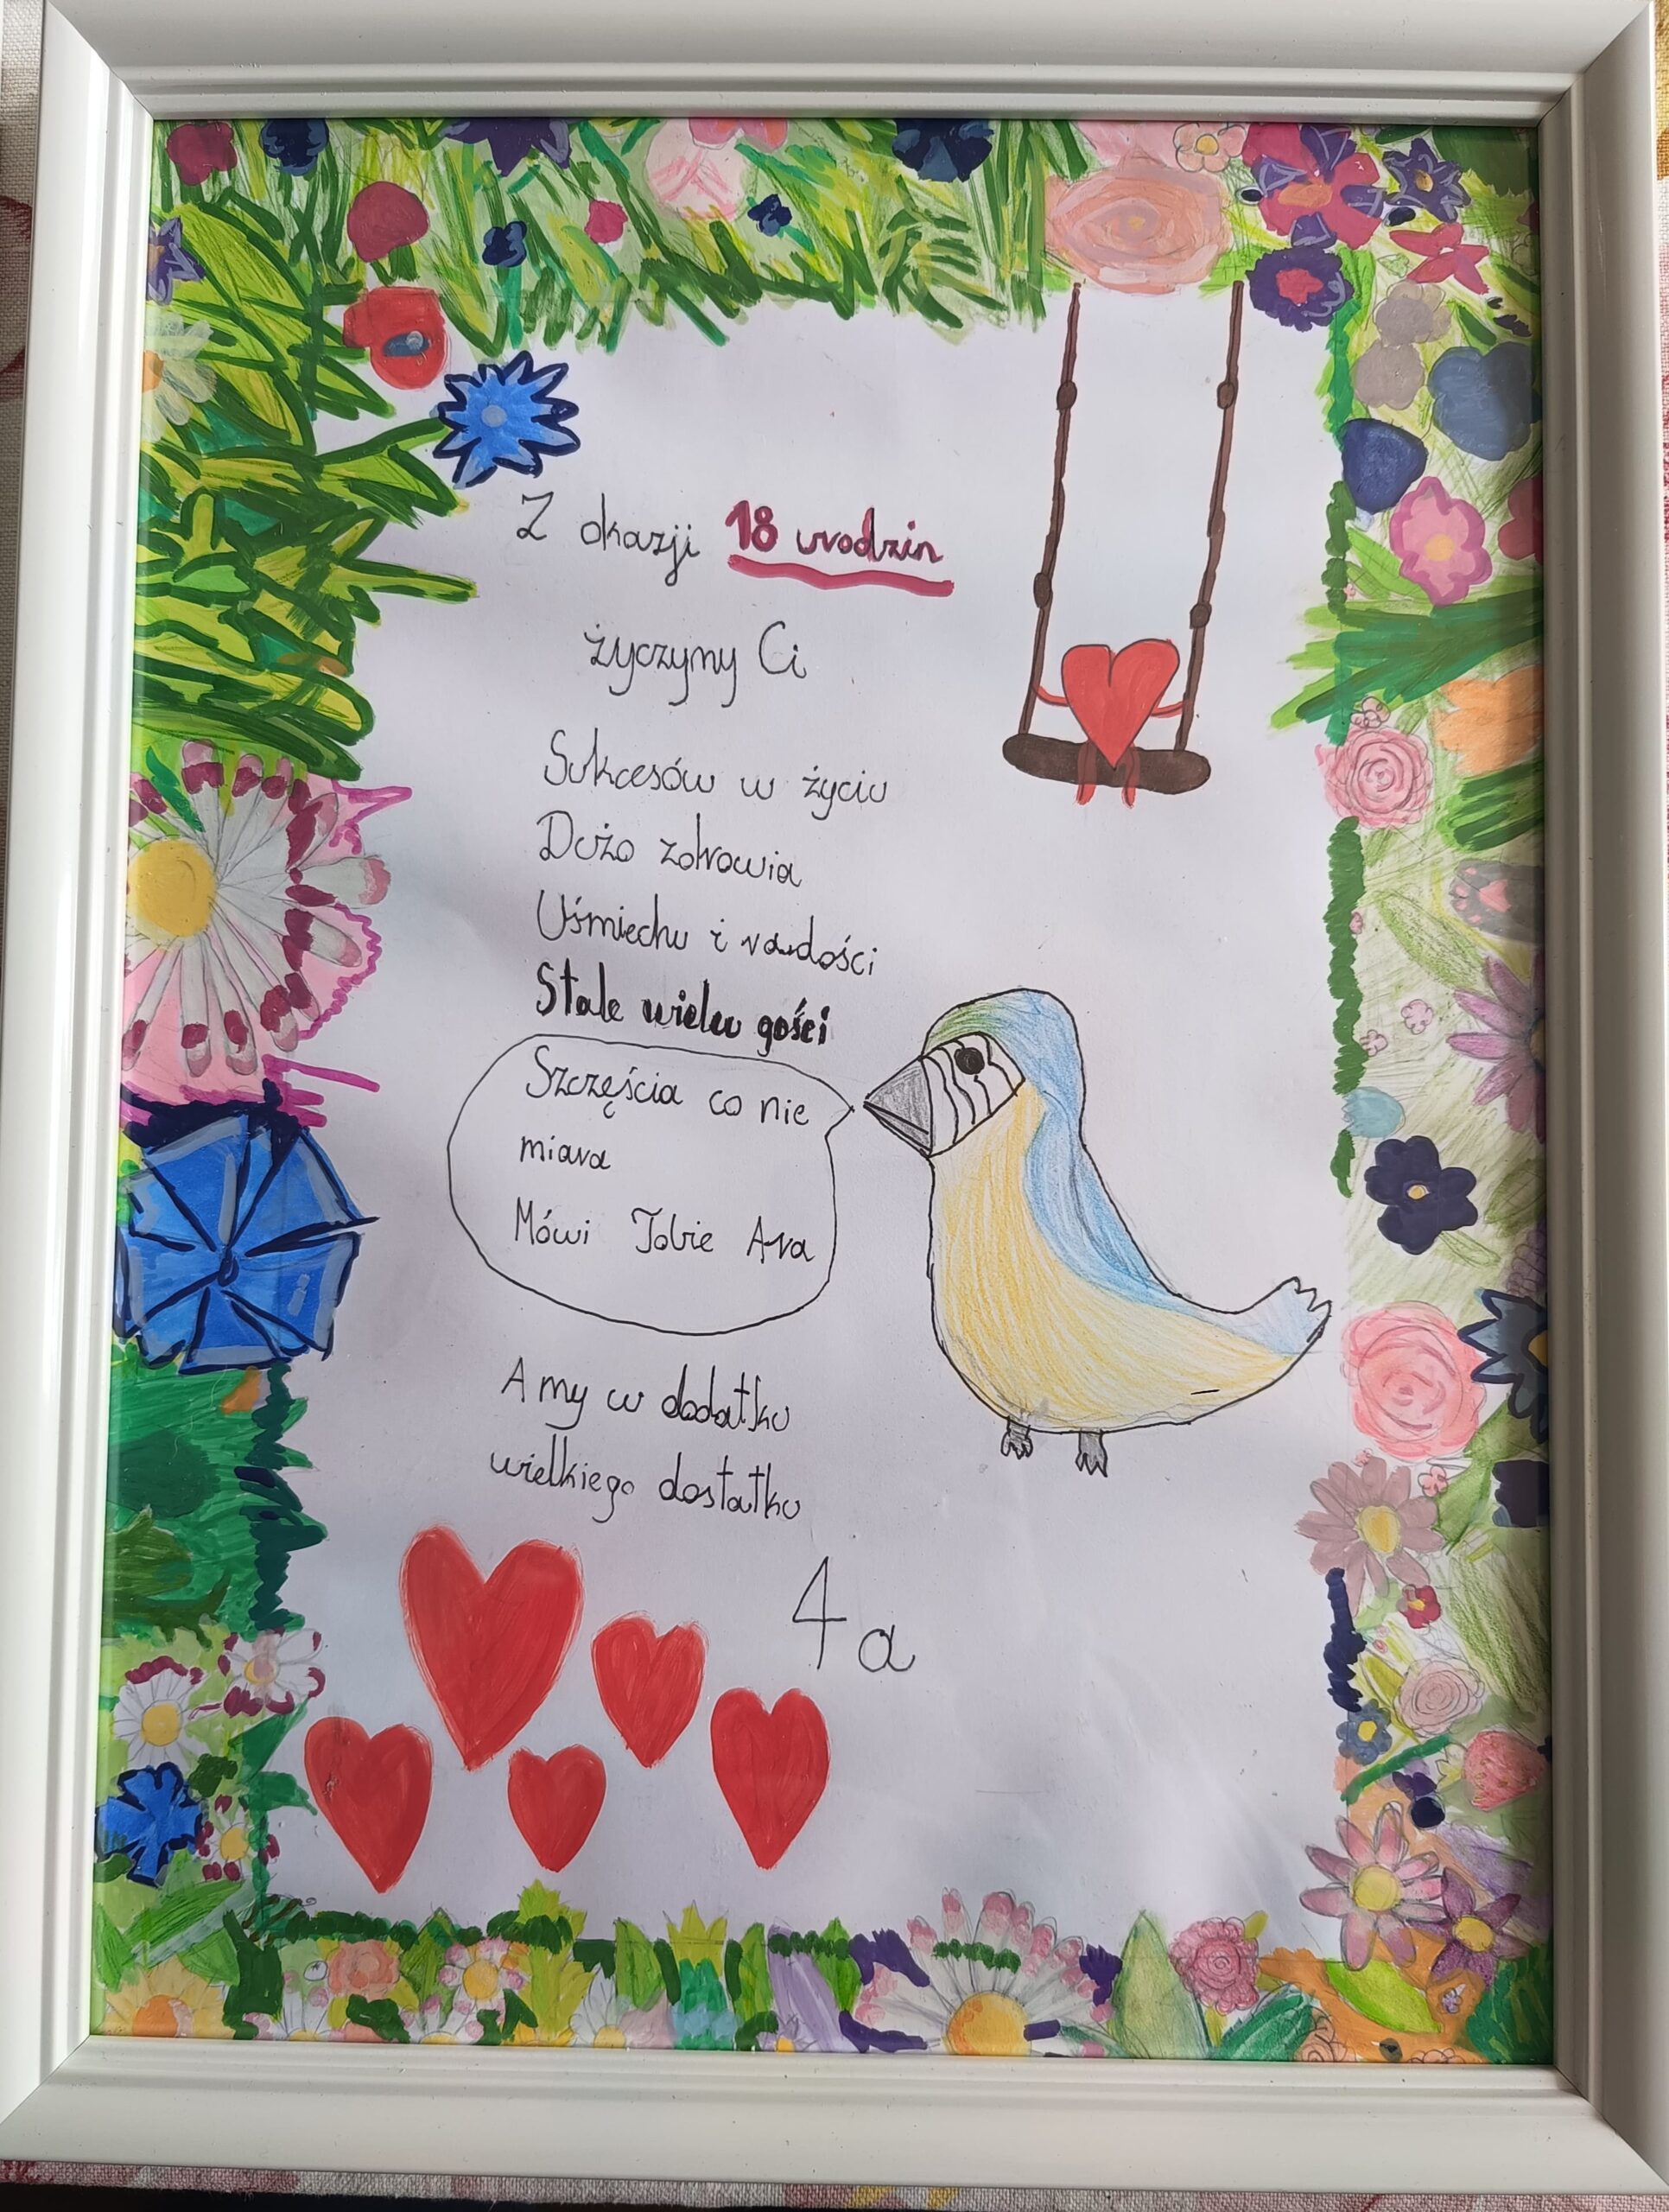 Z okazji 18 urodzin
życzymy Ci
Sukcesów w życiu
Dużo zdrowia
Uśmiechu i radości
Stale wielu gości
Szczęścia co nie
miara
Mówi Tobie Ara
A my w dodatku
wielkiego dostatku
4a